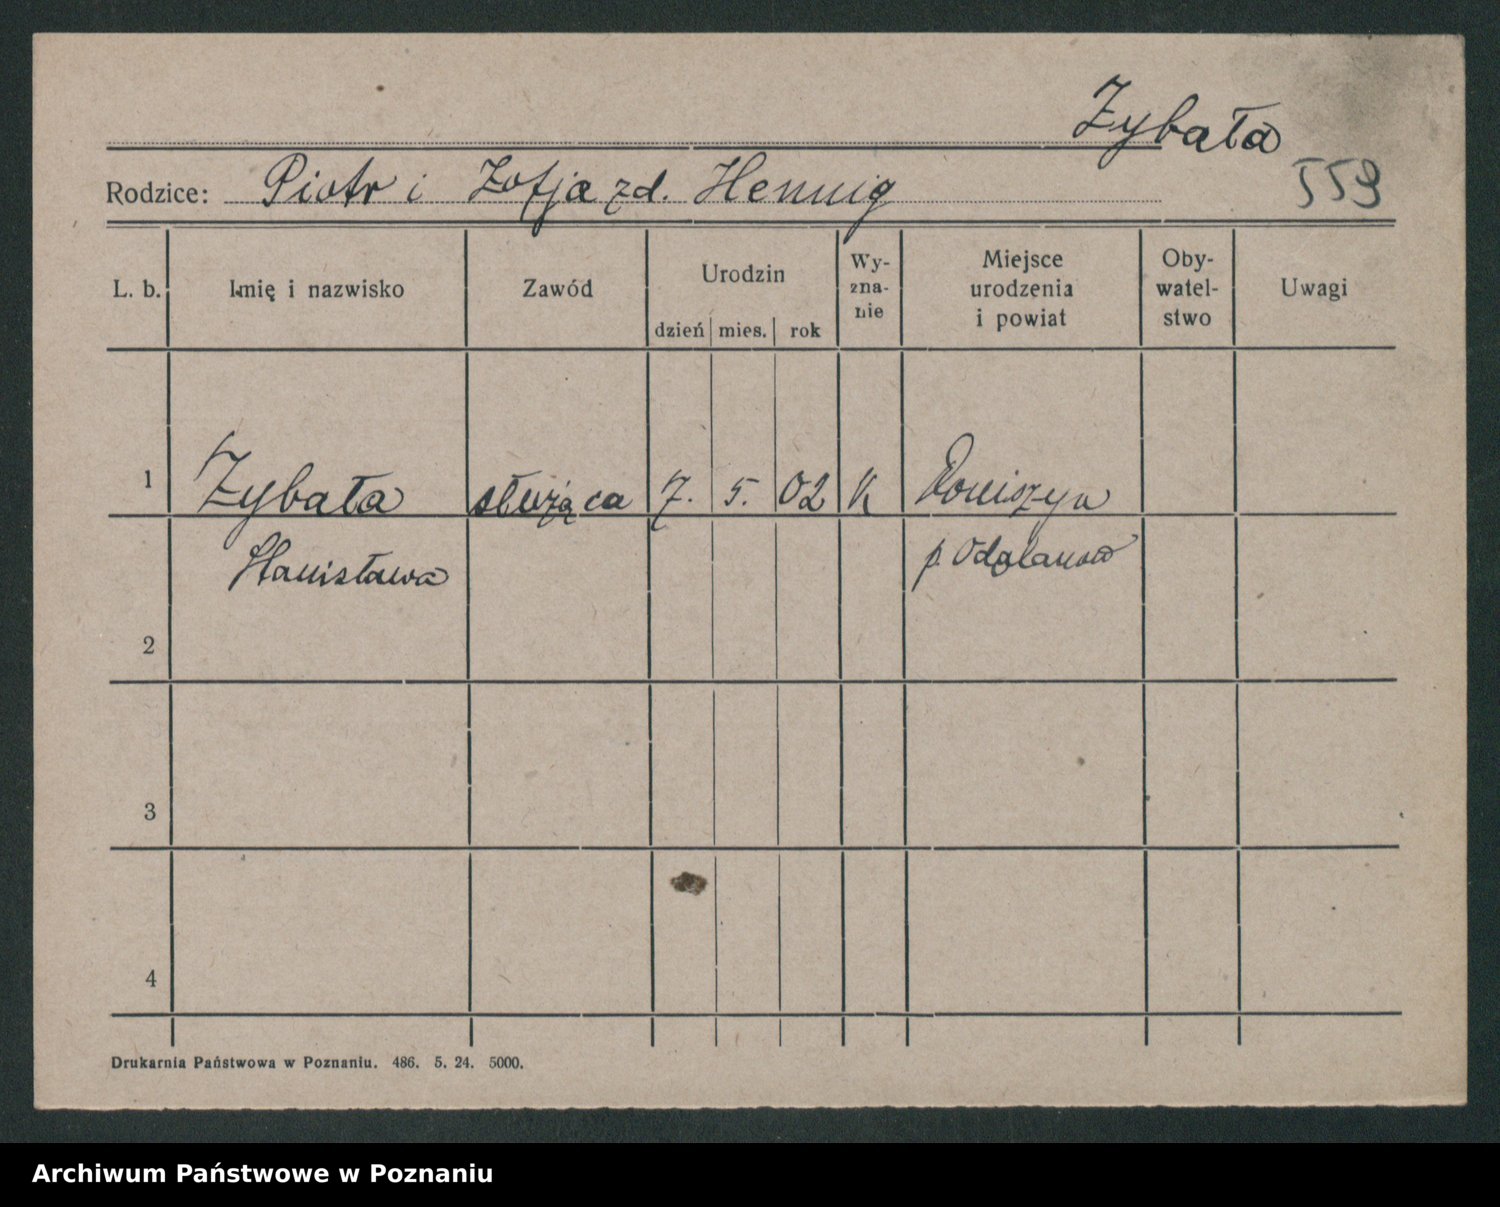 Zybała
Rodzice: Piotr i Zofja zd. Hennig
559
L. b.
Imię i nazwisko
Zawód
Urodzin
dzień
mies.
rok
Wy-
zna-
nie
Miejsce
urodzenia
i powiat
Oby-
watel-
stwo
Uwagi
1
Zybała
służąca
7.
5.
02
K
Stanisława
p. Odolanow
2
3
4
Drukarnia Państwowa w Poznaniu. 486. 5. 24. 5000.
Archiwum Państwowe w Poznaniu